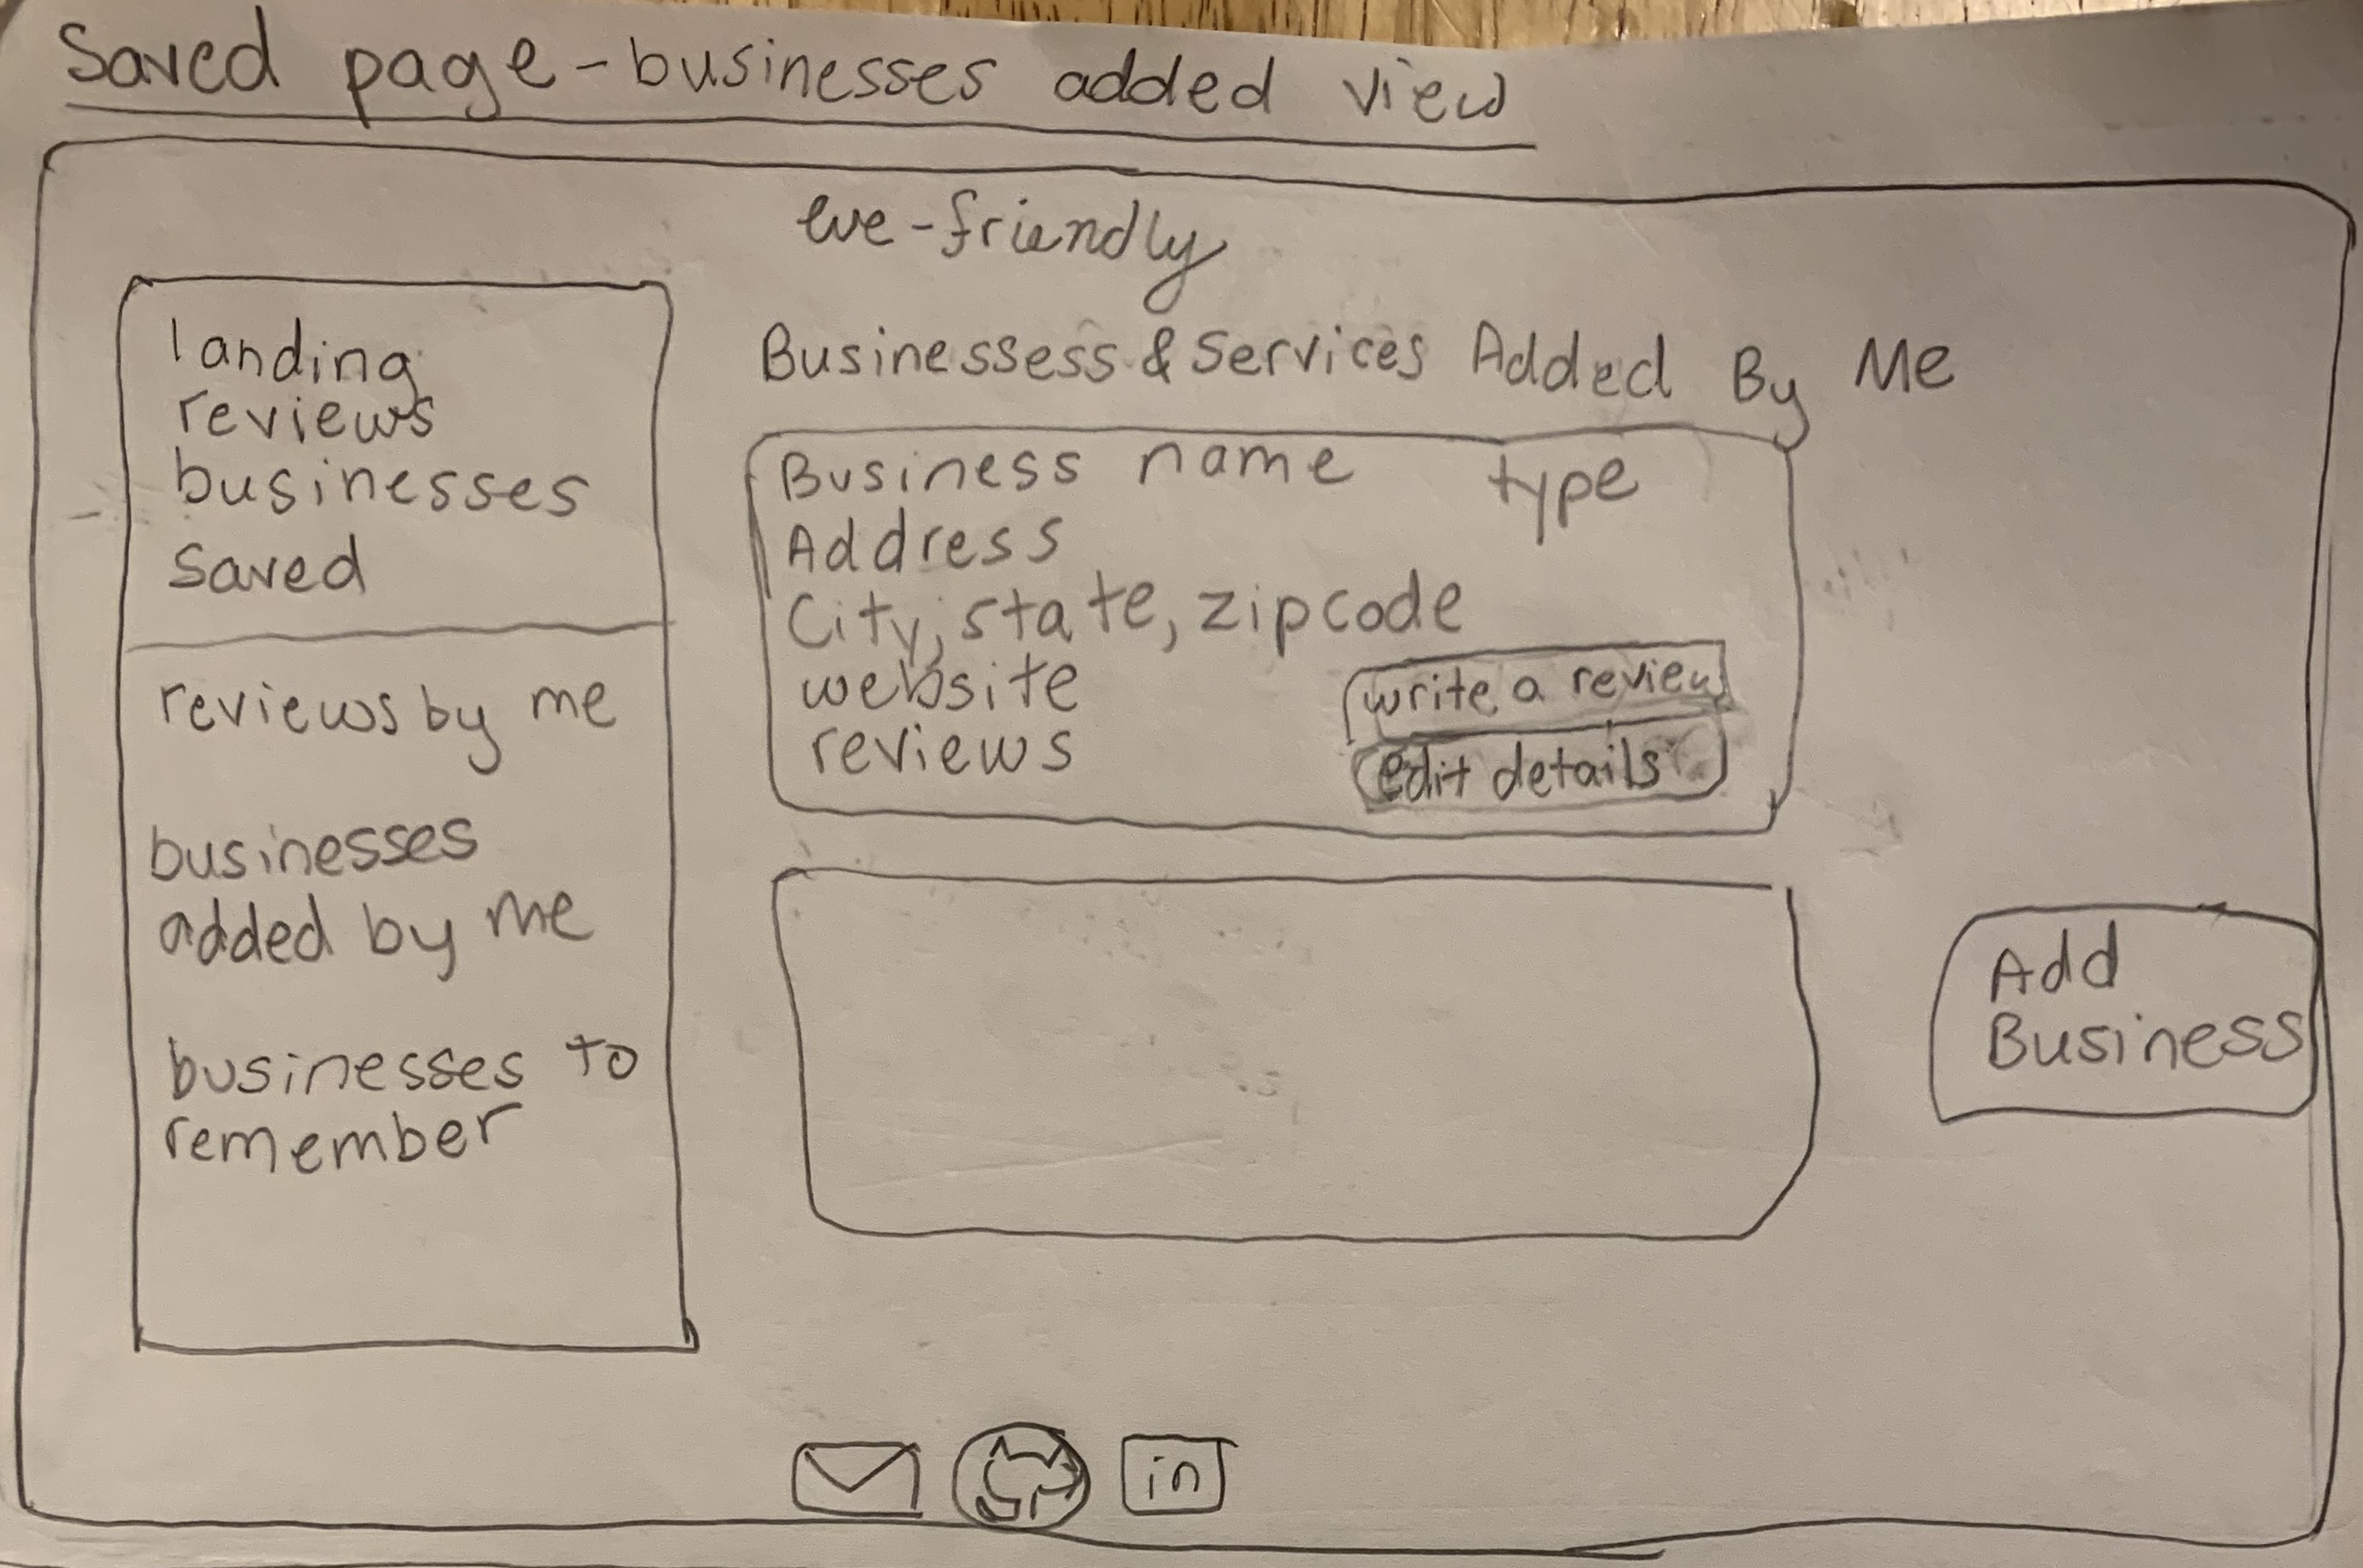 Saved page - businesses added view
eve-friendly
landing
reviews
businesses
saved
reviews by me
businesses
added by me
businesses to
remember
Businessess & Services Added By Me
Business name type
Address
City, state, zipcode
website
reviews
write a review
edit details
Add
Business
in